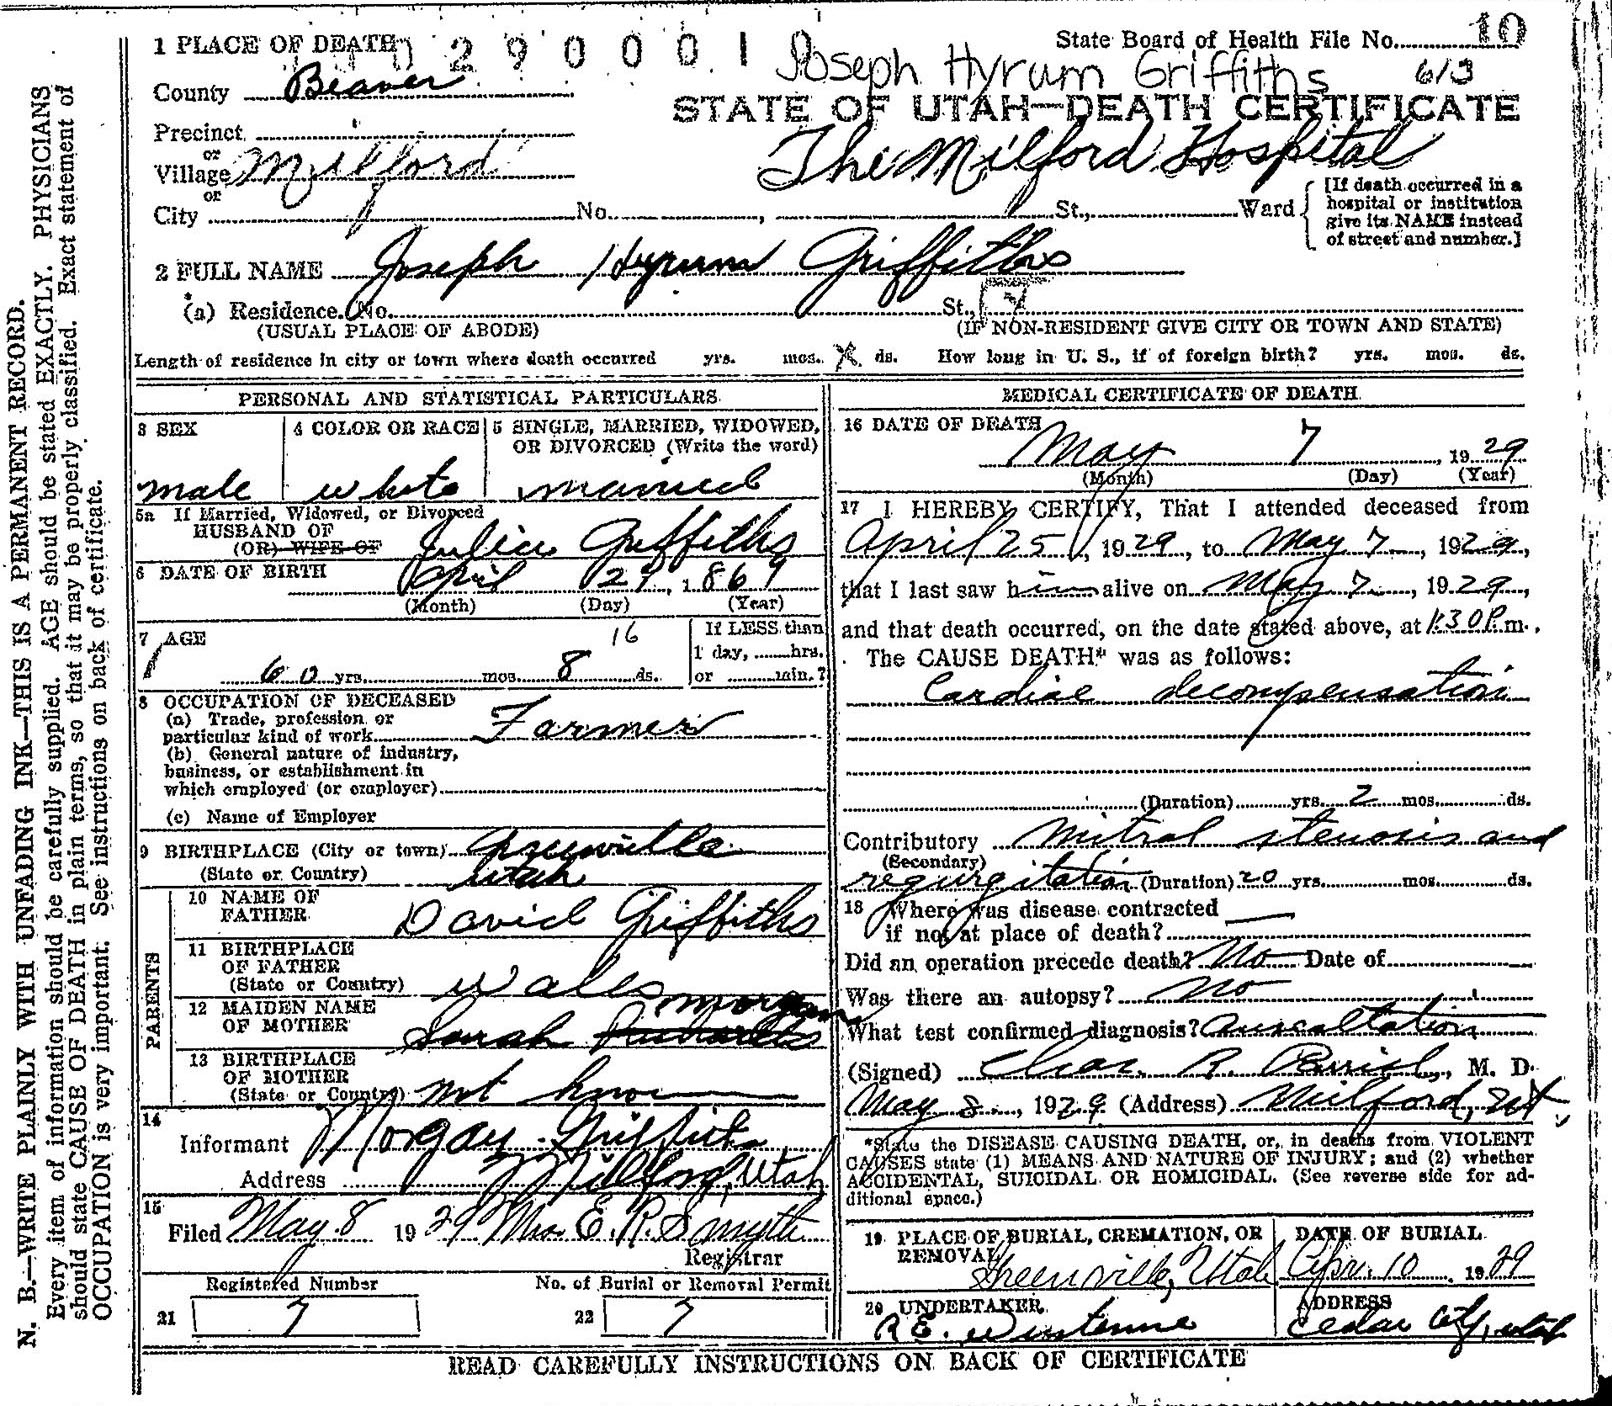 1 PLACE OF DEATH 2900010 State Board of Health File No. 10
Joseph Hyrum Griffiths 613
County Beaver
STATE OF UTAH—DEATH CERTIFICATE
Precinct
or
Village Milford The Milford Hospital
or
City No. , St., Ward
[If death occurred in a
hospital or institution
give its NAME instead
of street and number.]
2 FULL NAME Joseph Hyrum Griffiths
*(a) Residence. No. St., X
(USUAL PLACE OF ABODE) (IF NON-RESIDENT GIVE CITY OR TOWN AND STATE)
Length of residence in city or town where death occurred yrs. mos. X ds. How long in U. S., if of foreign birth? yrs. mos. ds.
PERSONAL AND STATISTICAL PARTICULARS
3 SEX
male
4 COLOR OR RACE
white
5 SINGLE, MARRIED, WIDOWED,
OR DIVORCED (Write the word)
married
5a If Married, Widowed, or Divorced
HUSBAND OF
(OR) WIFE OF Julia Griffiths
6 DATE OF BIRTH April 29, 1869
(Month) (Day) (Year)
7 AGE 16
60 yrs. mos. 8 ds.
If LESS than
1 day, hrs.
or min.?
8 OCCUPATION OF DECEASED
(a) Trade, profession or
particular kind of work Farmer
(b) General nature of industry,
business, or establishment in
which employed (or employer)
(c) Name of Employer
9 BIRTHPLACE (City or town) Greenville
(State or Country) Utah
PARENTS
10 NAME OF
FATHER David Griffiths
11 BIRTHPLACE
OF FATHER
(State or Country) Wales
12 MAIDEN NAME
OF MOTHER Sarah Morgan
13 BIRTHPLACE
OF MOTHER
(State or Country) not know
14
Informant Morgan Griffiths
Address Milford, Utah
15
Filed May 8 1929 Mrs. E. R. Smyth
Registrar
Registered Number No. of Burial or Removal Permit
21 7 22 7
MEDICAL CERTIFICATE OF DEATH
16 DATE OF DEATH
May 7, 1929
(Month) (Day) (Year)
17 I HEREBY CERTIFY, That I attended deceased from
April 25, 1929, to May 7, 1929,
that I last saw him alive on May 7, 1929,
and that death occurred, on the date stated above, at 1:30 P.m.
The CAUSE DEATH* was as follows:
Cardiac decompensation
(Duration) yrs. 2 mos. ds.
Contributory Mitral stenosis and
(Secondary)
regurgitation (Duration) 20 yrs. mos. ds.
18 Where was disease contracted
if not at place of death?
Did an operation precede death? No Date of
Was there an autopsy? No
What test confirmed diagnosis? Auscultation
(Signed) Chas. R. Parrish, M. D.
May 8, 1929 (Address) Milford, Ut.
*State the DISEASE CAUSING DEATH, or, in deaths from VIOLENT
CAUSES state (1) MEANS AND NATURE OF INJURY; and (2) whether
ACCIDENTAL, SUICIDAL OR HOMICIDAL. (See reverse side for ad-
ditional space.)
19 PLACE OF BURIAL, CREMATION, OR
REMOVAL
Greenville, Utah
DATE OF BURIAL
Apr. 10 1929
20 UNDERTAKER
R E.
ADDRESS
Cedar City, Utah
READ CAREFULLY INSTRUCTIONS ON BACK OF CERTIFICATE
N. B.—WRITE PLAINLY WITH UNFADING INK—THIS IS A PERMANENT RECORD.
Every item of information should be carefully supplied. AGE should be stated EXACTLY. PHYSICIANS
should state CAUSE OF DEATH in plain terms, so that it may be properly classified. Exact statement of
OCCUPATION is very important. See instructions on back of certificate.